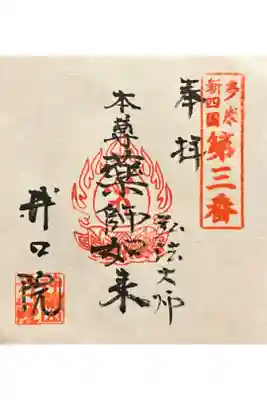 多摩
新四国
第三番
奉拝
本尊薬師如来
弘法大師
井口院